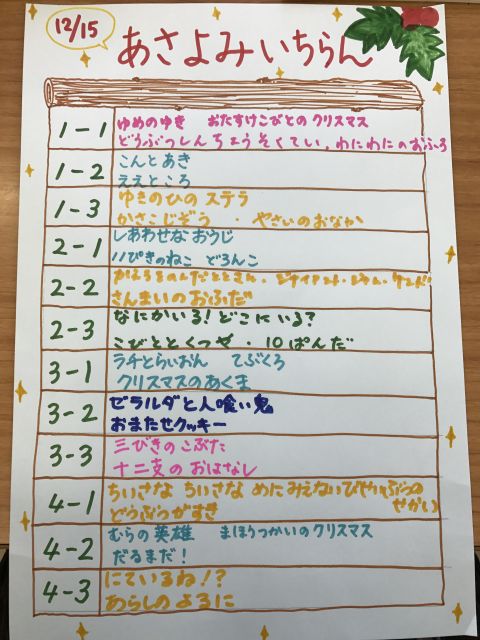 12/15
あさよみいちらん
1-1 ゆめのゆき おたすけこびとのクリスマス
どうぶつしんちょうそくてい,わにわにのおふろ
1-2 こんとあき
ええところ
1-3 ゆきのひの ステラ
かさこじぞう ・ やさいのおなか
2-1 しあわせなおうじ
11ぴきのねこ どろんこ
2-2
さんまいのおふだ
2-3 なにかいる!どこにいる?
こびととくつや・10ぱんだ
3-1 ラチとらいおん てぶくろ
クリスマスのあくま
3-2 ゼラルダと人喰い鬼
おまたせクッキー
3-3 三びきのこぶた
十二支のおはなし
4-1 ちいさな ちいさな めにみえないびせいぶつの
せかい
どうぶつがすき
4-2 むらの英雄 まほうつかいのクリスマス
だるまだ!
4-3 にているね!?
あらしのよるに